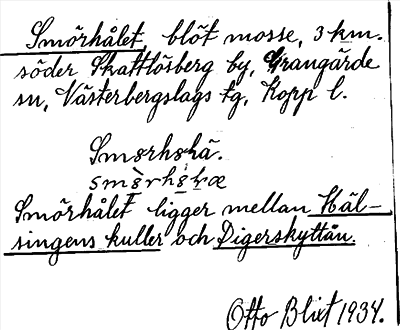 Smörhålet, blöt mosse, 3 km.
söder Skattlösberg by, Grangärde
sn, Västerbergslags tg, Kopp l.
Smørhøhä.
Smörhålet ligger mellan Häl-
singens kuller och Digerskyttån.
Otto Blixt 1934.